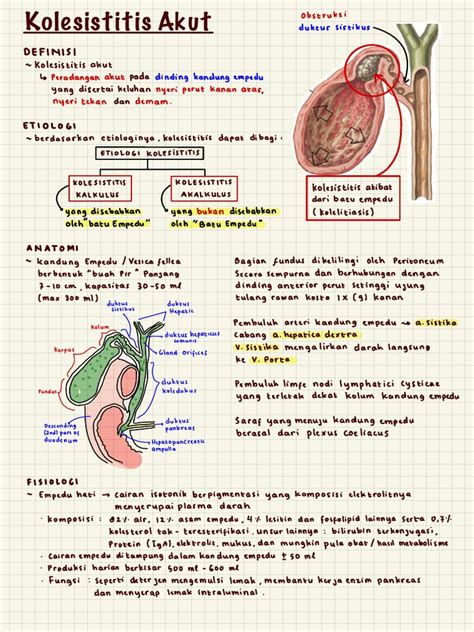 Kolesistitis Akut
Obstruksi
duktur sistikus
DEFINISI
~ Kolesistitis akut
↳ Peradangan akut pada dinding kandung empedu
yang disertai keluhan nyeri perut kanan atas,
nyeri tekan dan demam.
ETIOLOGI
~ berdasarkan etiologinya, kolesistitis dapat dibagi :
ETIOLOGI KOLESISTITIS
KOLESISTITIS
KALKULUS
KOLESISTITIS
AKALKULUS
yang disebabkan
oleh "batu Empedu"
yang bukan disebabkan
oleh "Batu Empedu"
kolesistitis akibat
dari batu empedu
(kolelitiasis)
ANATOMI
~ kandung Empedu / Vesica fellea
berbentuk "buah Pir" Panjang
7-10 cm, kapasitas 30-50 ml
(max 300 ml)
Bagian fundus dikelilingi oleh Peritoneum
Secara sempurna dan berhubungan dengan
dinding anterior perut setinggi ujung
tulang rawan kosta IX (9) kanan
Pembuluh arteri kandung empedu → a. Sistika
Cabang a. hepatica dextra
V. Sistika mengalirkan darah langsung
ke V. Porta
Pembuluh limfe nodi lymphatici cysticae
yang terletak dekat kolum kandung empedu
Saraf yang menuju kandung empedu
berasal dari plexus coeliacus
duktus
sistikus
duktus
Hepatic
Kolum
duktus hepaticus
comunis
Gland orifices
Korpus
Fundus
duktus
koledokus
Descending
(2nd) part of
duodenum
duktus
pankreas
Hepatopancreatic
ampulla
FISIOLOGI
~ Empedu hati → cairan isotonik berpigmentasi yang komposisi elektrolitnya
menyerupai plasma darah
· Komposisi : 82% air, 12% asam empedu, 4% lesitin dan fosfolipid lainnya serta 0,7%
kolesterol tak - teresterifikasi. unsur lainnya : bilirubin terkonjugasi,
Protein (IgA), elektrolit, mukus, dan mungkin pula obat / hasil metabolisme
· Cairan empedu ditampung dalam kandung empedu ± 50 ml
· Produksi harian berkisar 500 ml - 600 ml
· Fungsi : Seperti deterjen mengemulsi lemak, membantu kerja enzim pankreas
dan menyerap lemak intraluminal.